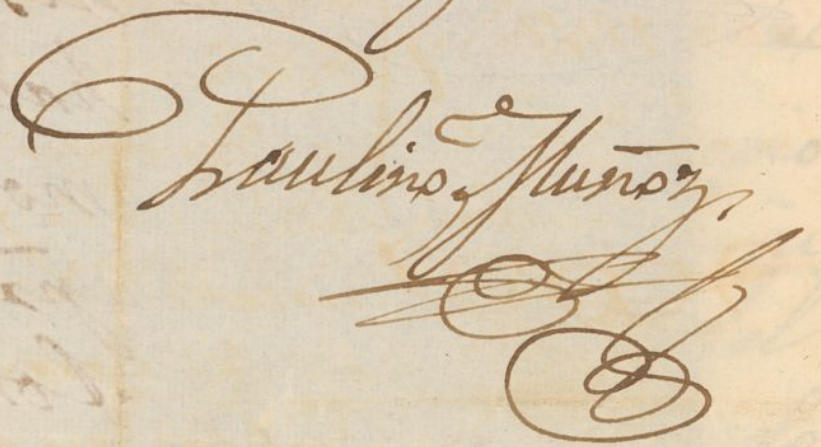 Paulino Muñoz.